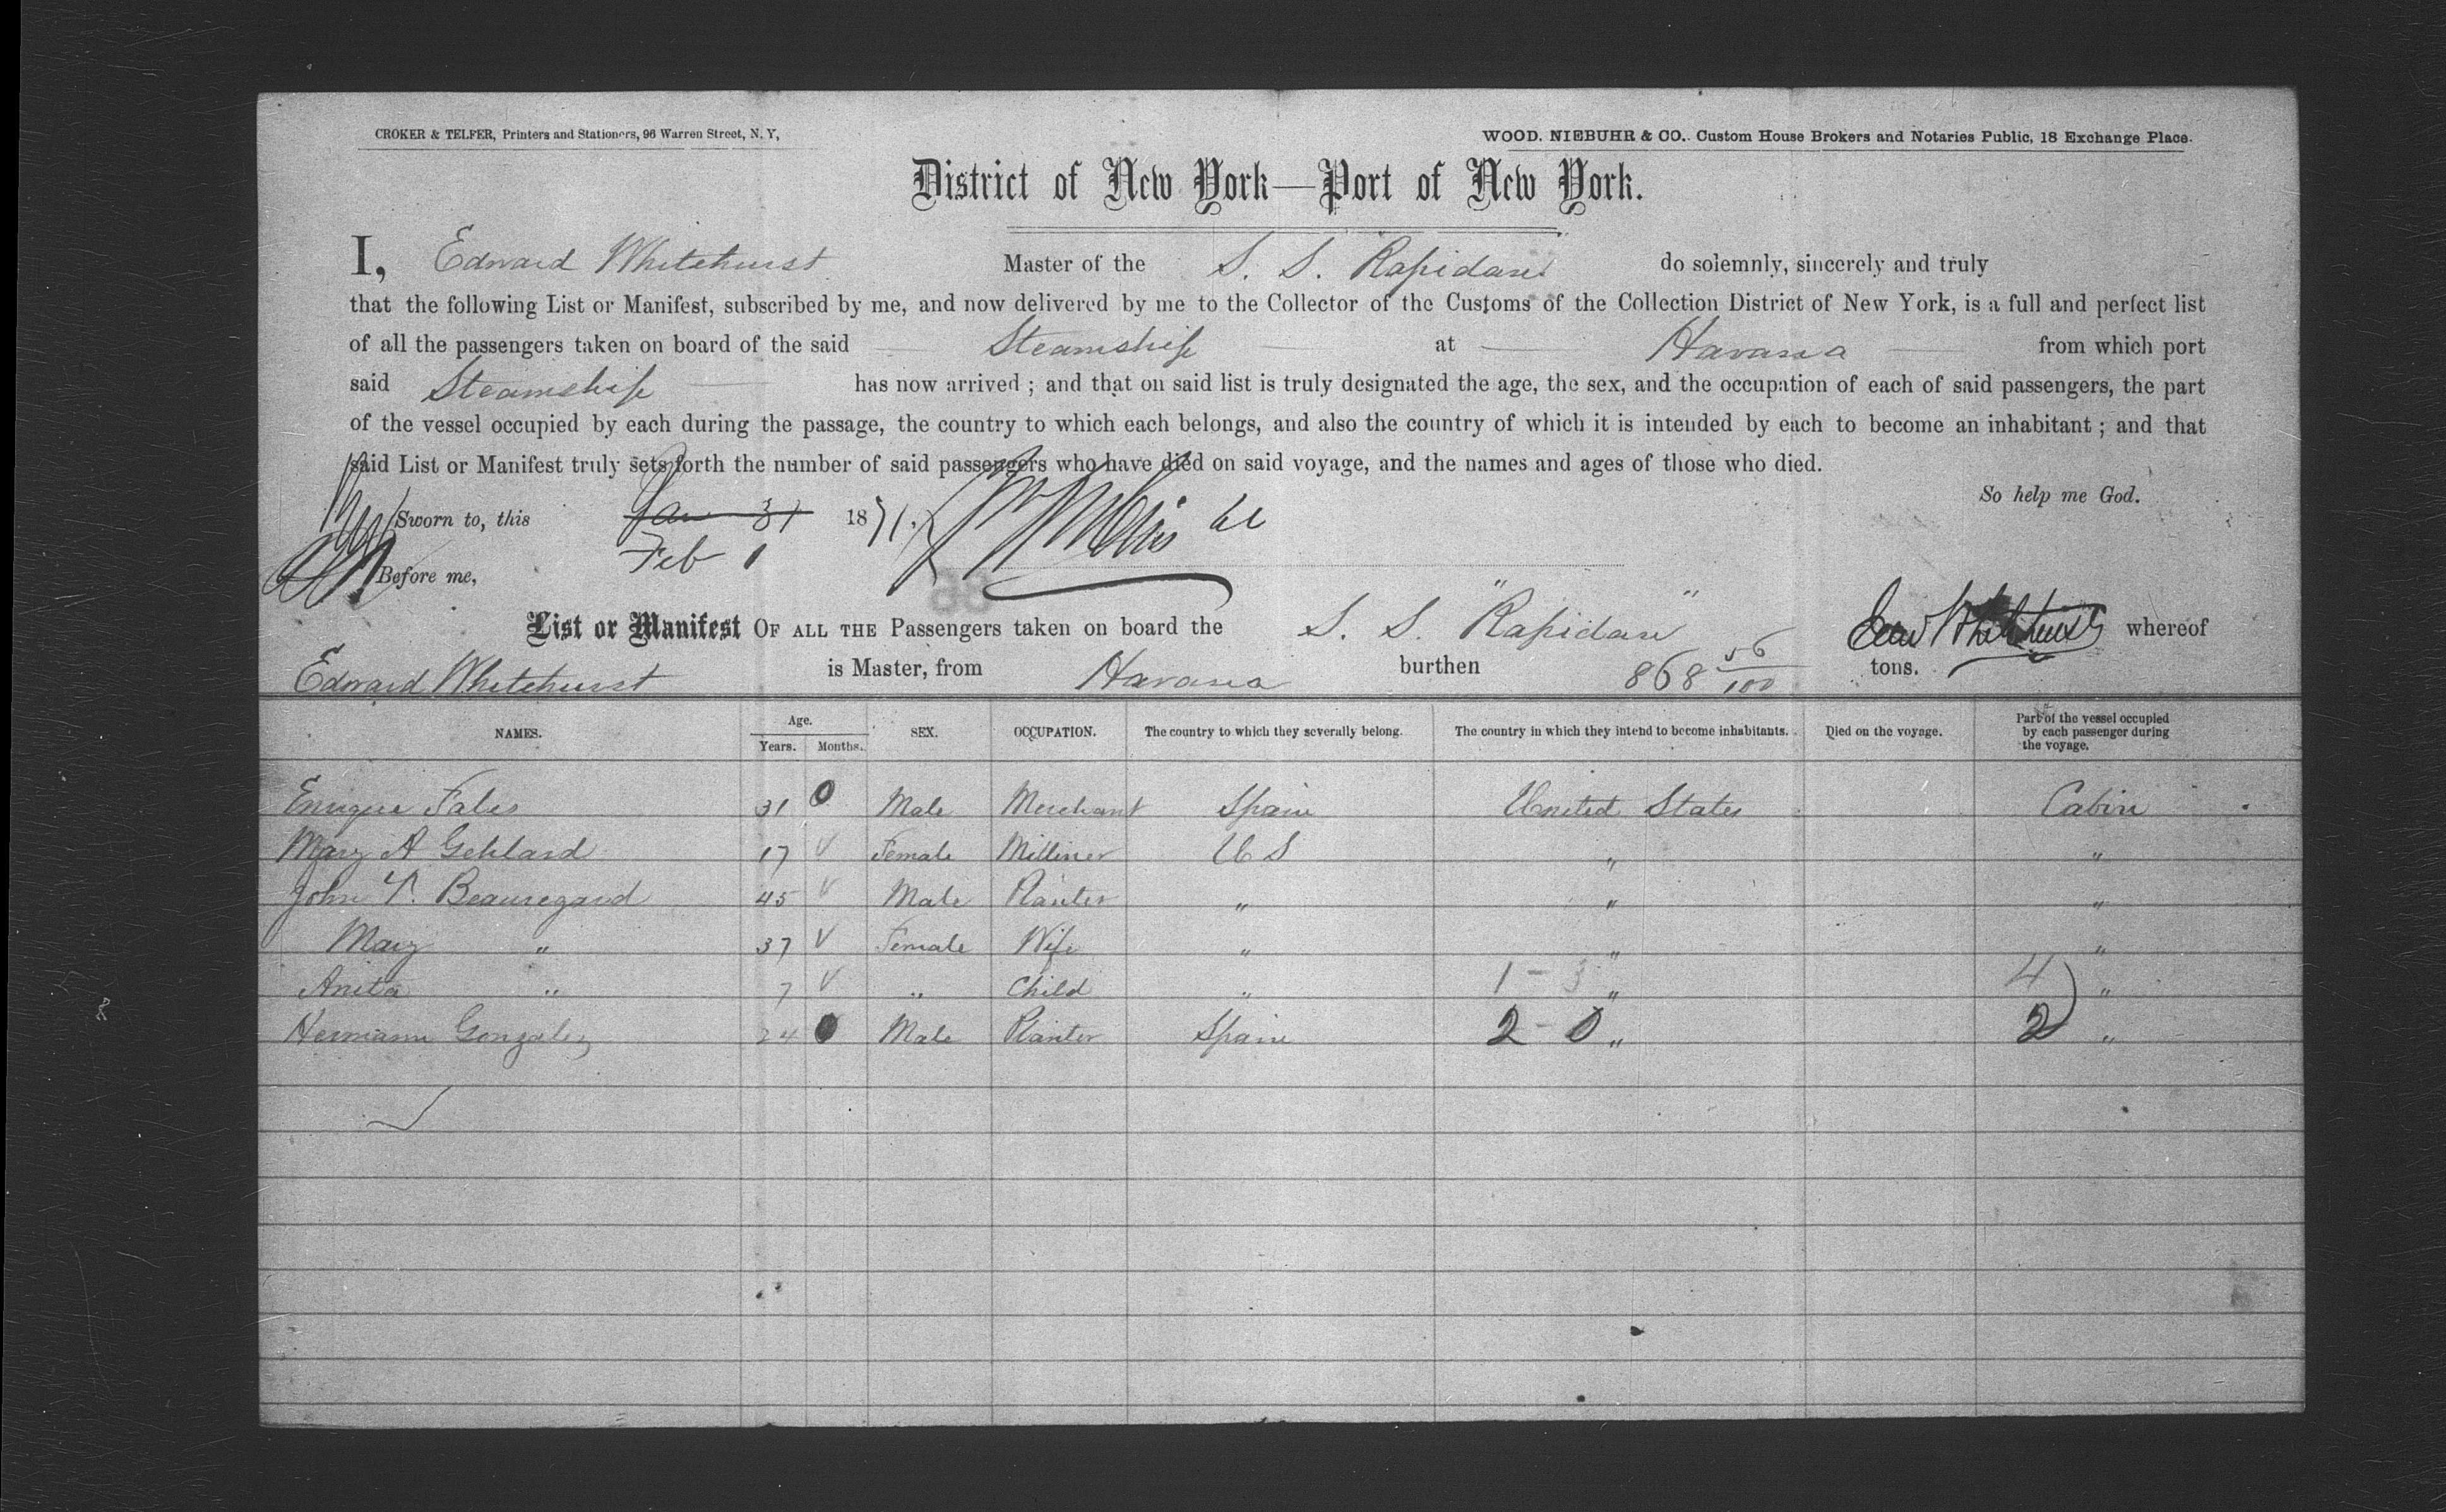 CROKER & TELFER, Printers and Stationers, 96 Warren Street, N. Y,
WOOD. NIEBUHR & CO,. Custom House Brokers and Notaries Public, 18 Exchange Place.
District of New York—Port of New York.
I, Edward Whitehurst Master of the S. S. "Rapidan" do solemnly, sincerely and truly
that the following List or Manifest, subscribed by me, and now delivered by me to the Collector of the Customs of the Collection District of New York, is a full and perfect list
of all the passengers taken on board of the said Steamship at Havana from which port
said Steamship has now arrived ; and that on said list is truly designated the age, the sex, and the occupation of each of said passengers, the part
of the vessel occupied by each during the passage, the country to which each belongs, and also the country of which it is intended by each to become an inhabitant ; and that
said List or Manifest truly sets forth the number of said passengers who have died on said voyage, and the names and ages of those who died.
So help me God.
Sworn to, this Jan 31 1871.
Feb 1
Before me,
List or Manifest OF ALL THE Passengers taken on board the S. S. "Rapidan" Edw Whitehurst whereof
Edward Whitehurst is Master, from Havana burthen 868 56/100 tons.
NAMES. Age. Years. Months. SEX. OCCUPATION. The country to which they severally belong. The country in which they intend to become inhabitants. Died on the voyage. Part of the vessel occupied by each passenger during the voyage.
Enrique Fales 31 0 Male Merchant Spain United States Cabin
Mary A Gehlard 17 Female Milliner U S " "
John T. Beauregard 45 Male Planter " " "
Mary " 37 Female Wife " " "
Anita " 7 " Child " 1 - 3 " 4 "
Hermann Gonzalez 24 0 Male Planter Spain 2 - 0 " 2 "
8